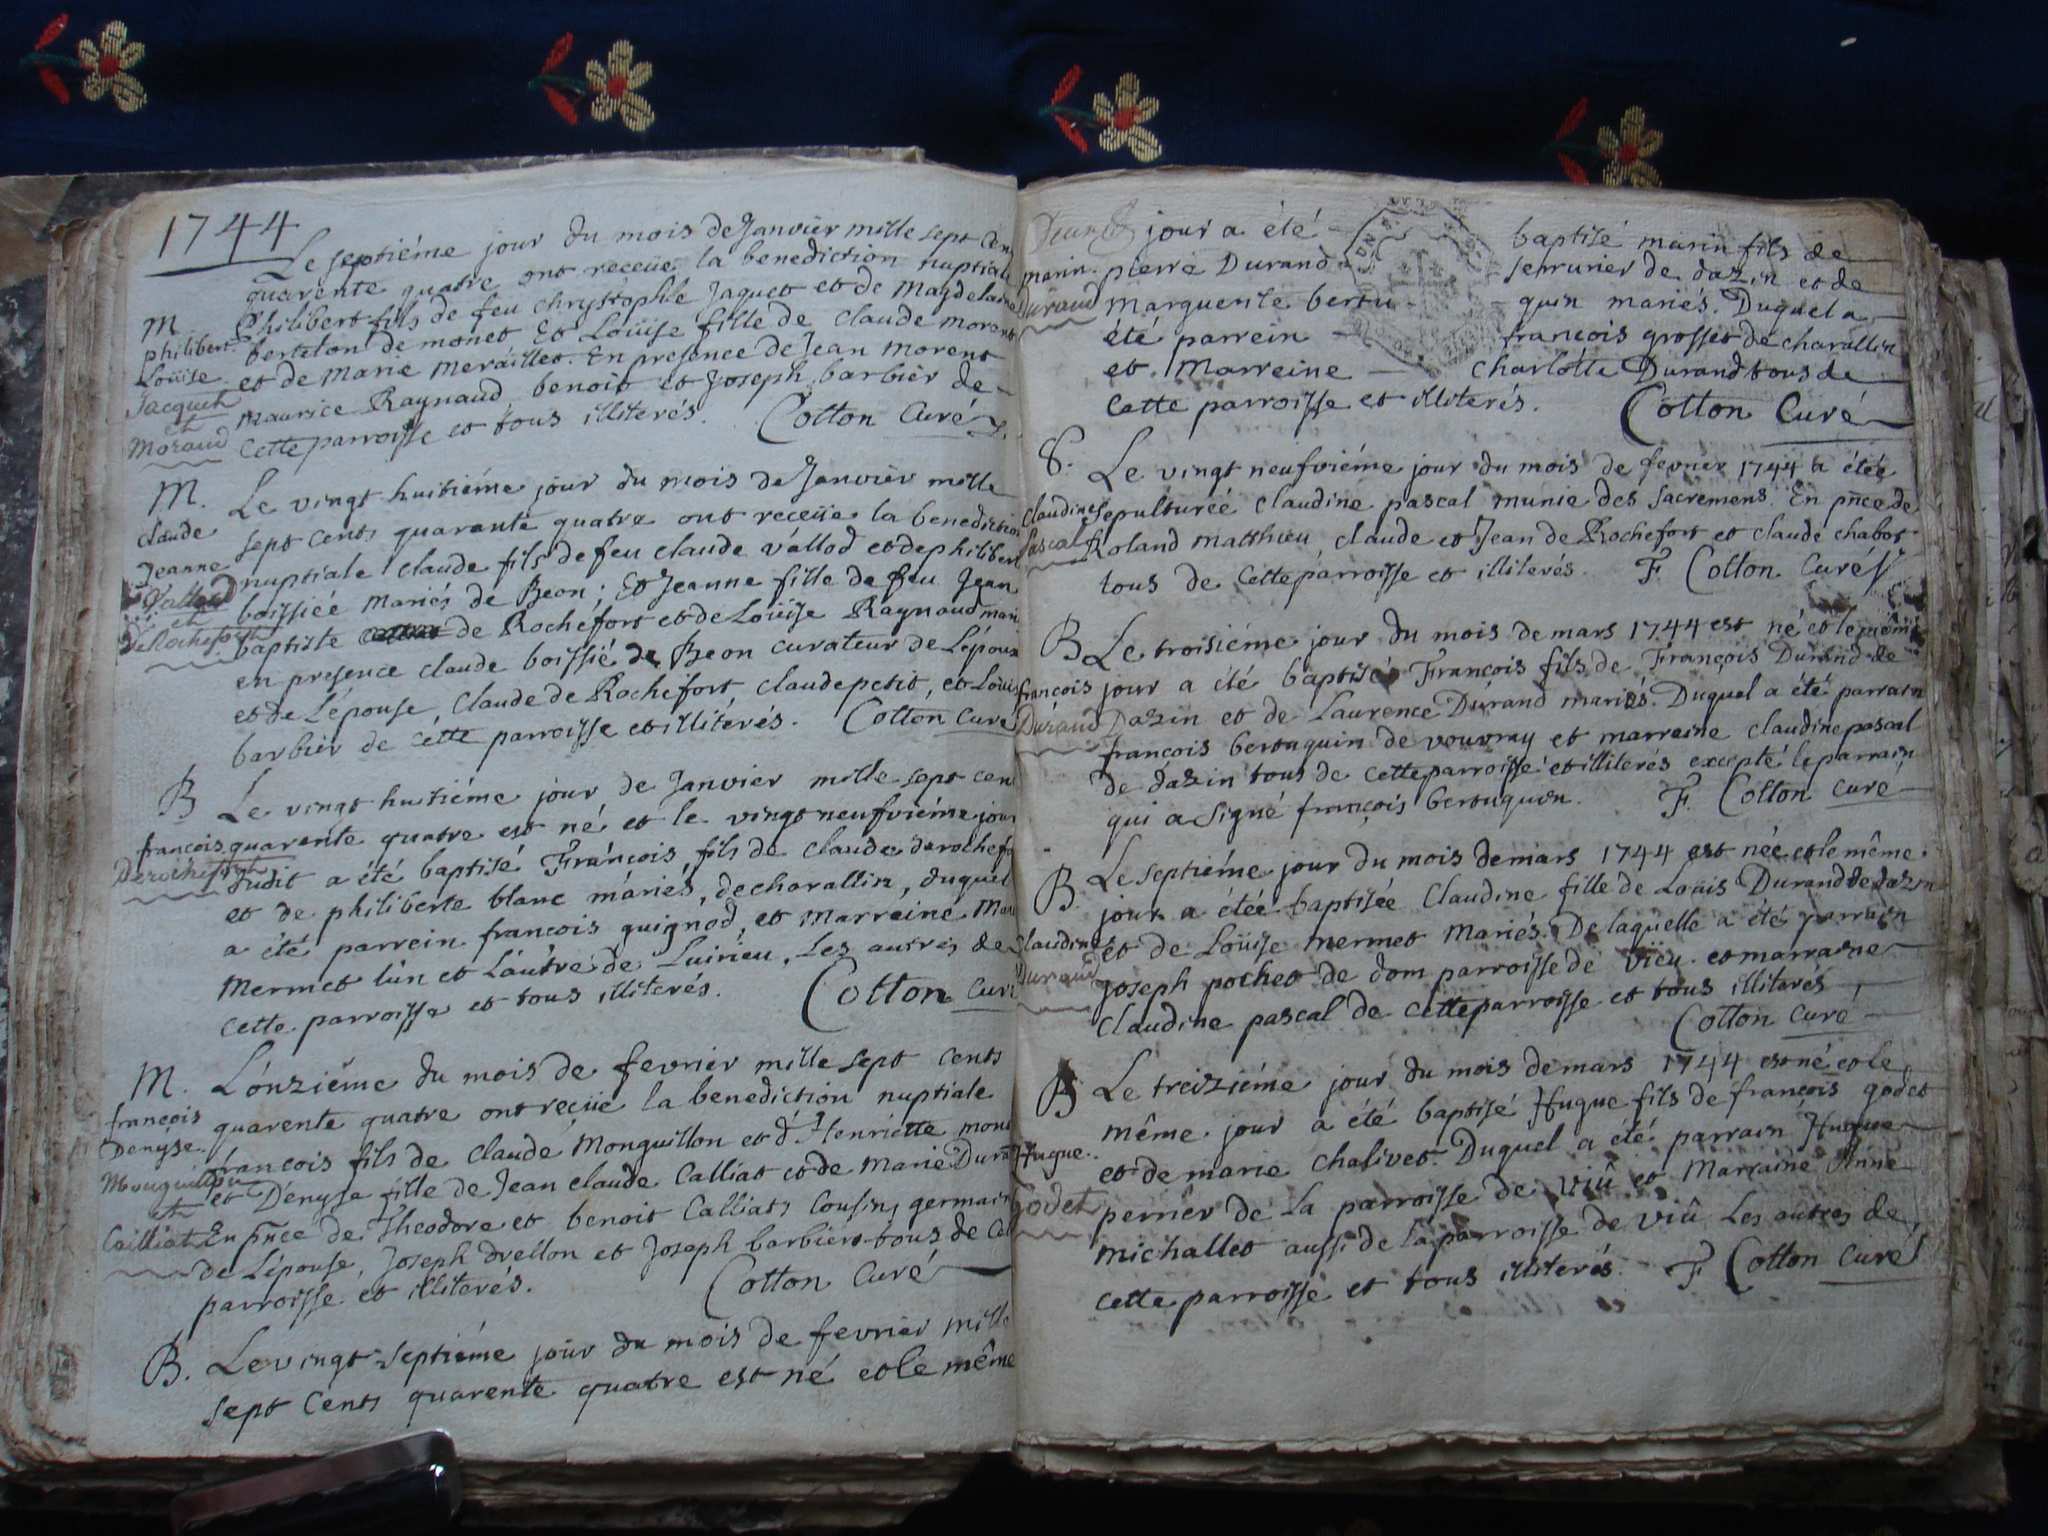 1744
Le septiéme jour du mois de Janvier mille sept cens
quarente quatre ont receüe la benediction nuptiale
M Philibert fils de feu chrystophle Jaquet et de Magdelaine
philibert bertelon de monet Et Loüise fille de claude morent
Loüise et de Marie meraillet. En presence de Jean Morent
Jacquet et maurice Raynaud, benoit et Joseph barbier de
Moraud cette parroisse et tous illiterés. Cotton Curé
M. Le vingt huitiéme jour du mois de Janvier mille
claude sept cents quarante quatre ont receüe la benediction
Jeanne nuptiale claude fils de feu claude vallod et de philibert
Vallod boissiée mariés de Beon; Et Jeanne fille de feu Jean
et DeRochefort baptiste de Rochefort et de Loüise Raynaud mari
en presence claude boissié de Beon curateur de Lépoux
et de Lépouse, Claude de Rochefort, claude petit, et Loüis
barbier de cette parroisse et illitérés. Cotton curé
B Le vingt huitiéme jour de Janvier mille sept cen
francois quarente quatre est né et le vingt neufviéme jour
Derochefort sudit a été baptisé François fils de claude derochefo
et de philiberte blanc máriés, de charallin, duquel
a été parrein francois guignod, et Marreine Mari
Mermet lún et Láutre de Luirieu, Les autres de
cette parroisse et tous illiterés. Cotton Curé
M. Lónziéme du mois de fevrier mille sept cents
francois quarente quatre ont recüe la benediction nuptiale
Denyse francois fils de claude Monguillon et d'Henriette mon
Monguillon et Denyse fille de Jean claude Calliat et de Marie Dura
et Calliat En pñce de Theodore et benoit Calliats Cousins germains
de Lépouse, Joseph drellon et Joseph barbier tous de Cet
parroisse et illiterés. Cotton Curé
B. Le vingt septiéme jour du mois de fevrier mille
sept Cents quarente quatre est né et le même
B jour a été baptisé marin fils de
marin pierre Durand serrurier de dazin et de
Durand Marguerite bertu quin mariés. Duquel a
été parrein françois grosset de charallin
et Marreine charlotte Durand tous de
cette parroisse et illiterés. Cotton Curé
S. Le vingt neufviéme jour du mois de fevrier 1744 a étée
claudine sepulturée claudine pascal munie des Sacremens. En pñce de
Pascal Roland matthieu, claude et Jean de Rochefort et claude chabot
tous de cette parroisse et illiterés. F. Cotton Curé
B Le troisiéme jour du mois de mars 1744 est né et le même
françois jour a été baptisé François fils de François Durand de
Durand Dazin et de Laurence Durand mariés. Duquel a été parrain
francois bertuquin de vouvray et marreine claudine pascal
de dazin tous de cette parroisse et illiterés excepté le parrain
qui a signé françois bertuquin. F. Cotton curé
B. Le septiéme jour du mois de mars 1744 est née et le même
jour a étée baptisée Claudine fille de Loüis Durand de dazin
claudine et de Loüise mermet Mariés. De laquelle a été parrain
Durand joseph pochet de dom parroisse de viëu et marraine
Claudine pascal de cette parroisse et tous illiterés,
Cotton Curé
B Le treiziéme jour du mois de mars 1744 est né et le
même jour a été baptisé Hugue fils de françois godet
Hugue et de marie chalivet. Duquel a été parrain Hugue
Godet perrier de La parroisse de viû et Marraine Anne
michallet aussi de la parroisse de viû Les autres de
cette parroisse et tous illiterés. F. Cotton Curé